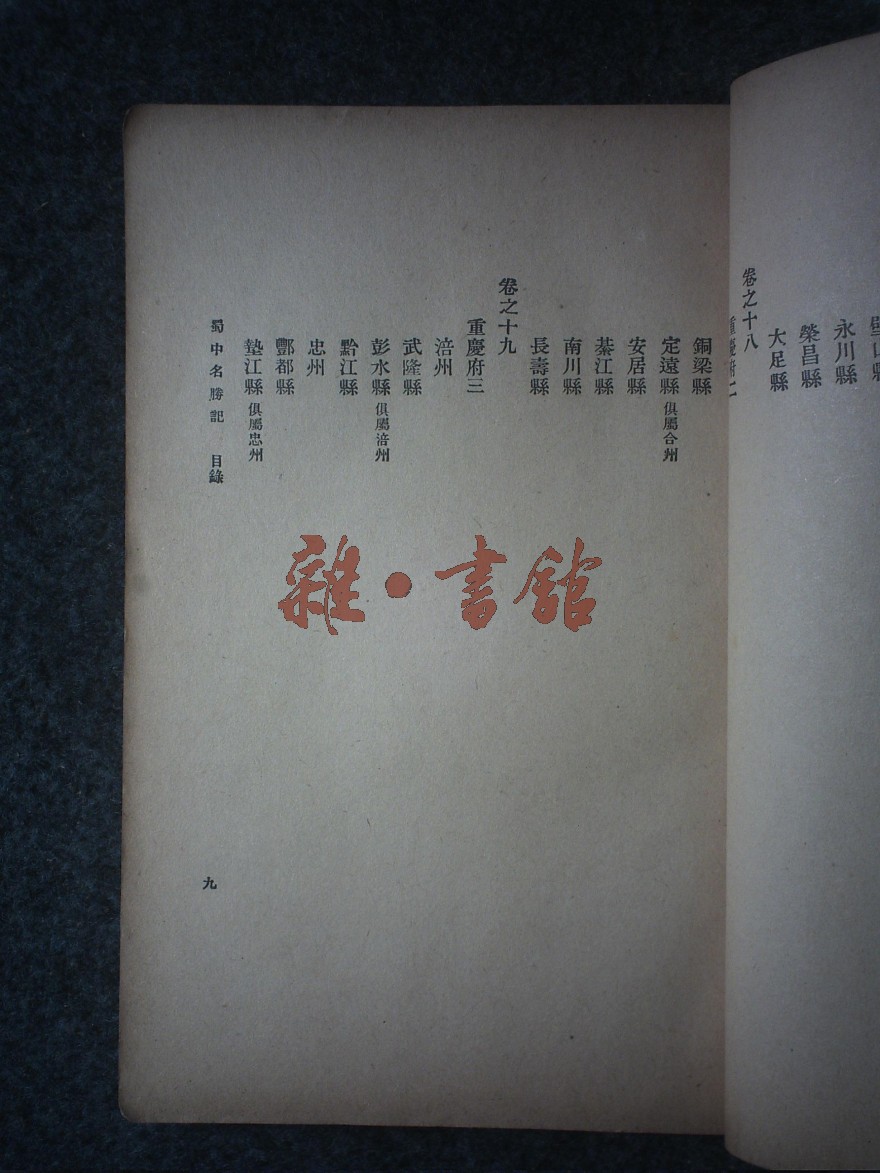 永川縣
榮昌縣
大足縣
卷之十八
重慶府二
銅梁縣
定遠縣 俱屬合州
安居縣
綦江縣
南川縣
長壽縣
卷之十九
重慶府三
涪州
武隆縣
彭水縣 俱屬涪州
黔江縣
忠州
酆都縣
墊江縣 俱屬忠州
蜀中名勝記 目錄
九
雜·書館